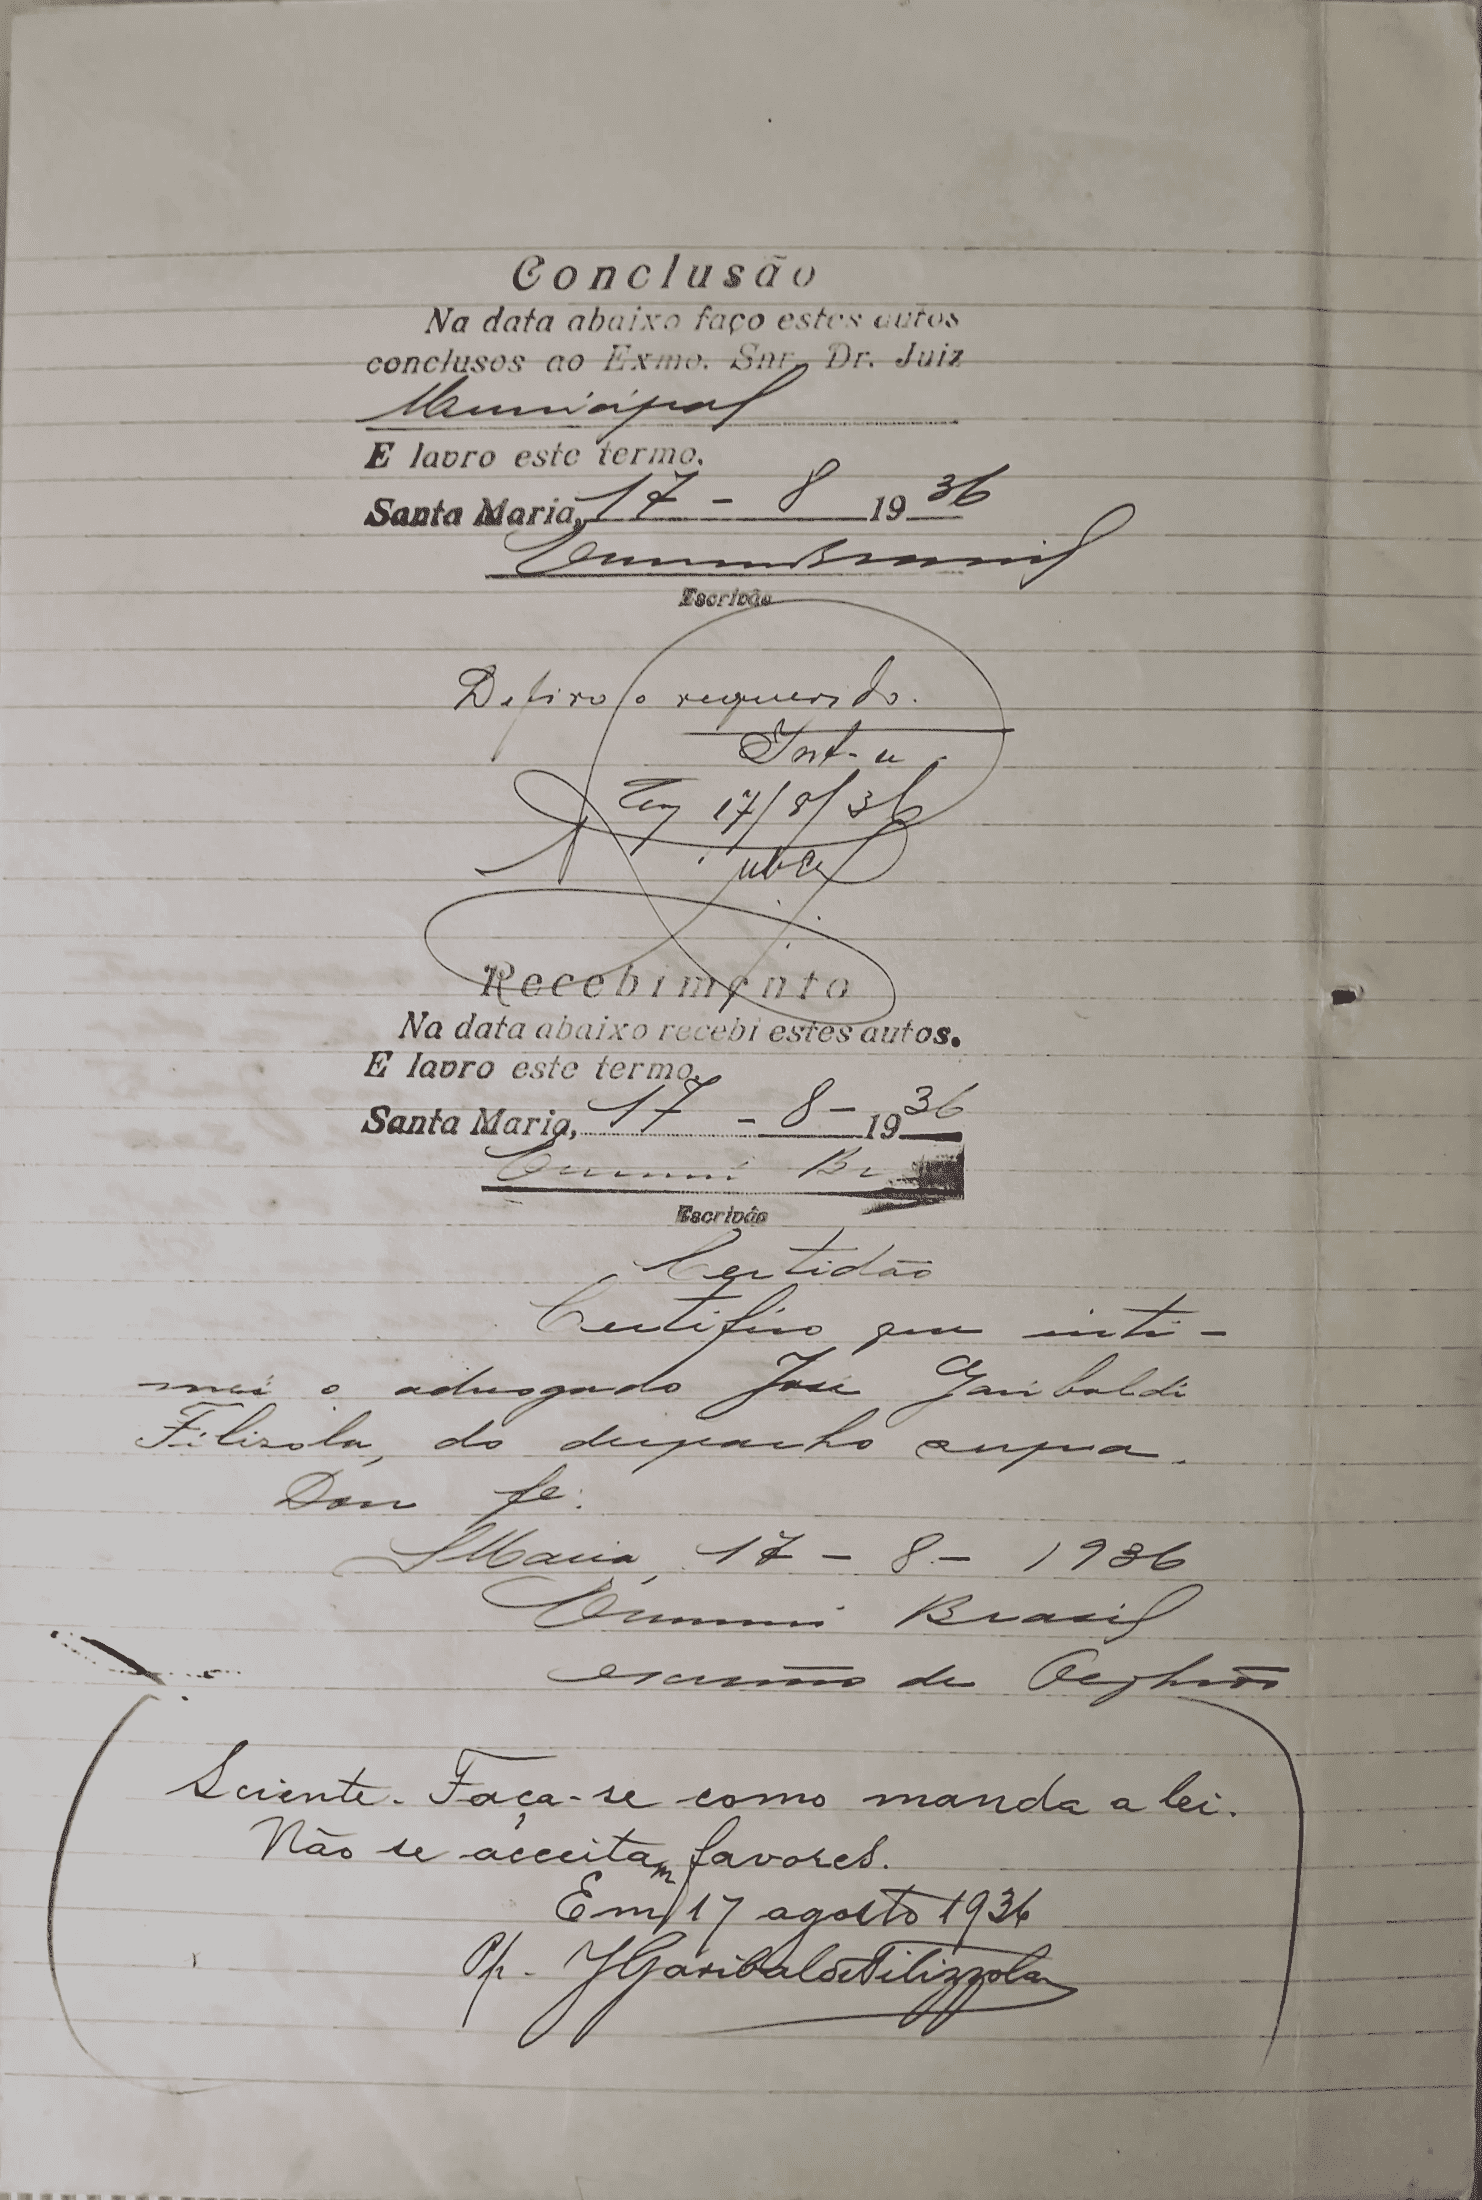 Conclusão
Na data abaixo faço estes autos
conclusos ao Exmo. Snr. Dr. Juiz
Municipal
E lavro este termo.
Santa Maria, 17 - 8 1936
Brasil
Escrivão
Defiro o requerido.
Em 17/8/36
Recebimento
Na data abaixo recebi estes autos.
E lavro este termo.
Santa Maria, 17 - 8 - 1936
Escrivão
Certidão
Certifico que inti-
mei o advogado José Garibaldi
Filizola, do despacho supra.
Dou fe.
S Maria, 17 - 8 - 1936
Brasil
escrivão de
Sciente. Faça-se como manda a lei.
Não se acceitam favores.
Em 17 agosto 1936
Pp. JGaribaldi Filizzola